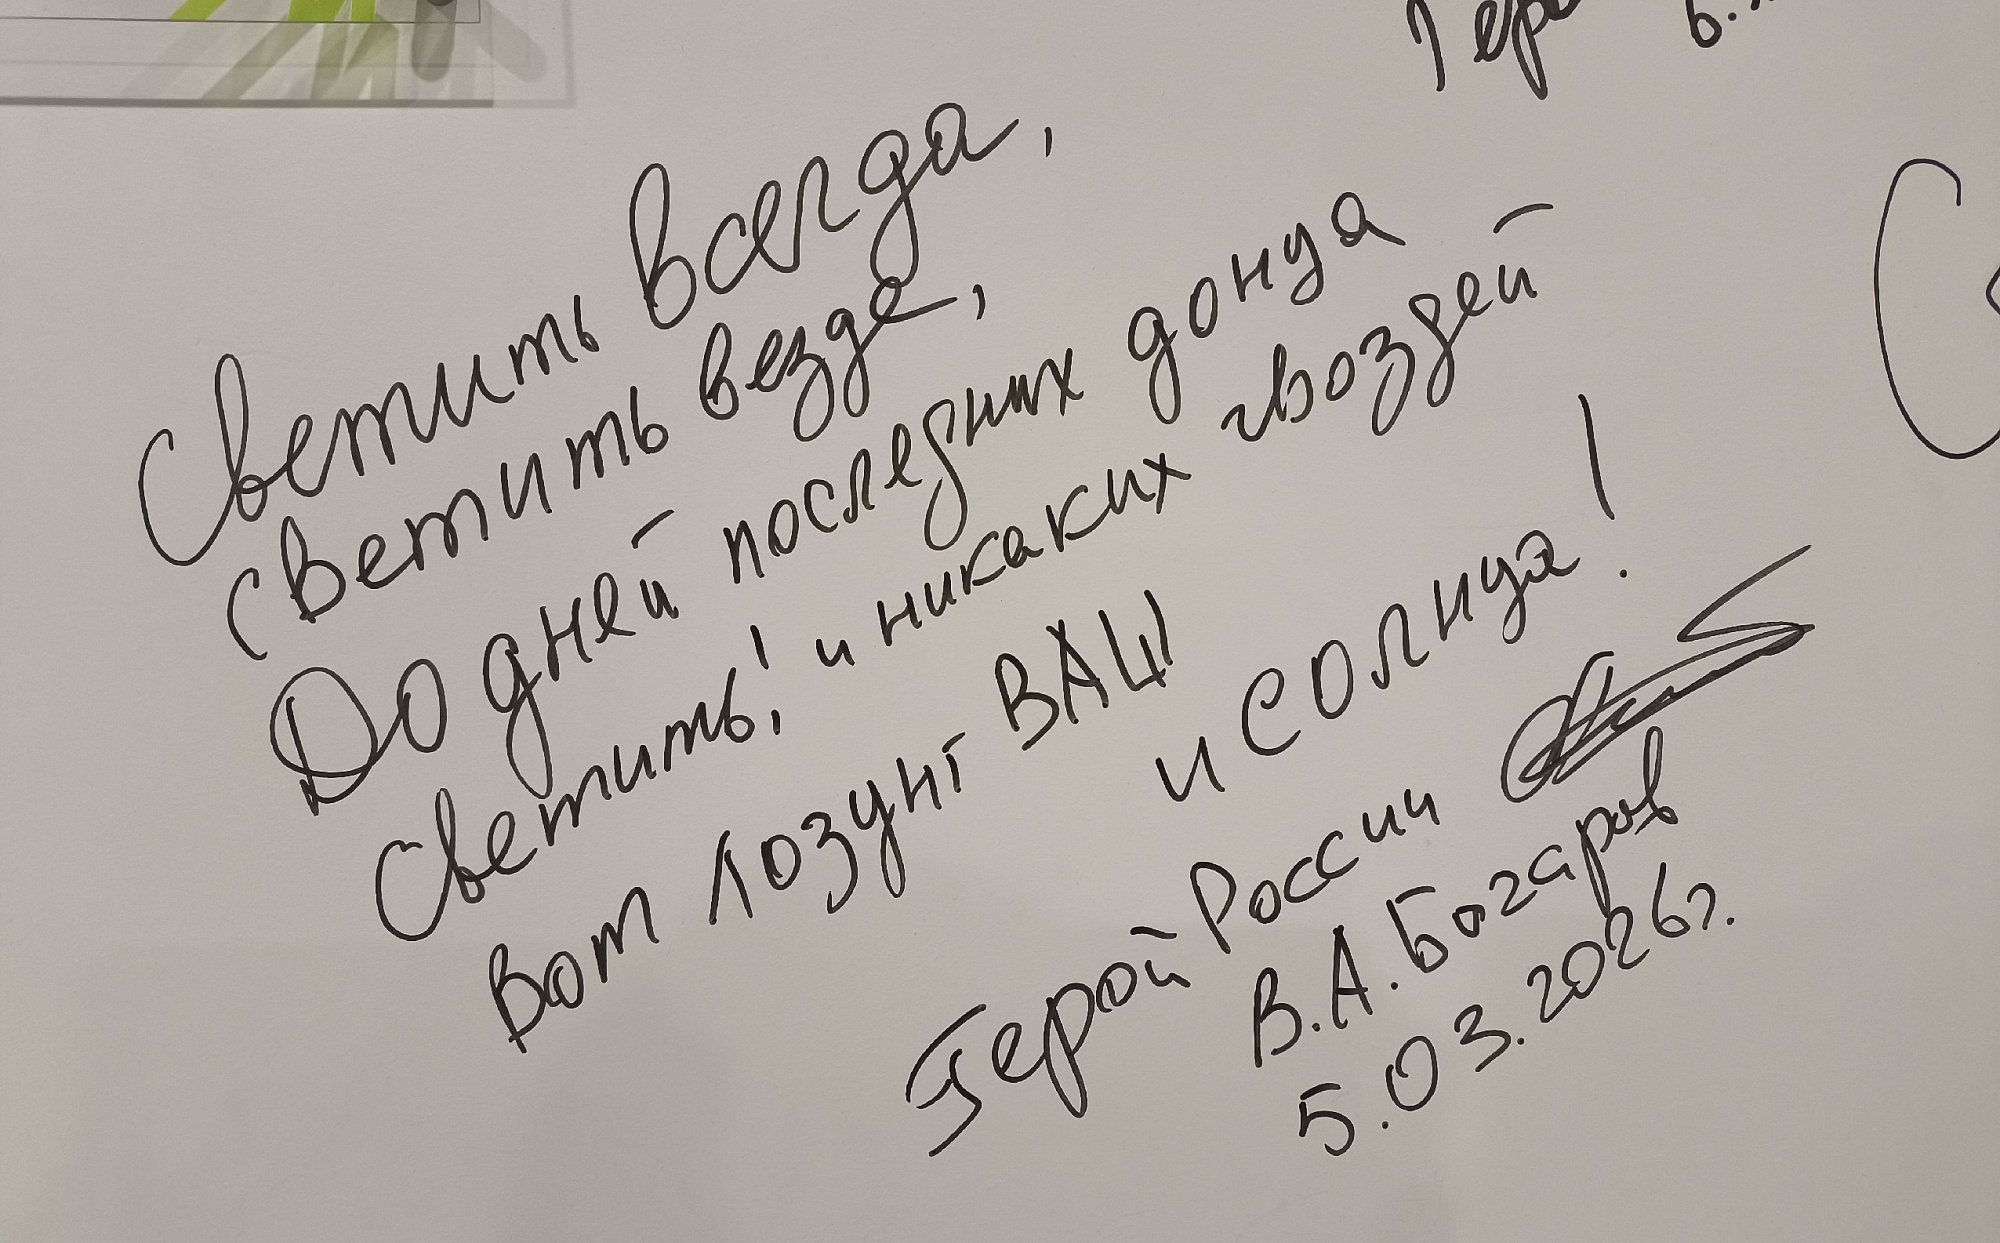 Светить всегда,
светить везде,
До дней последних донца
Светить! и никаких гвоздей
Вот лозунг ВАШ
и солнца!
Герой России
В.А. Богаров
5.03.2026г.